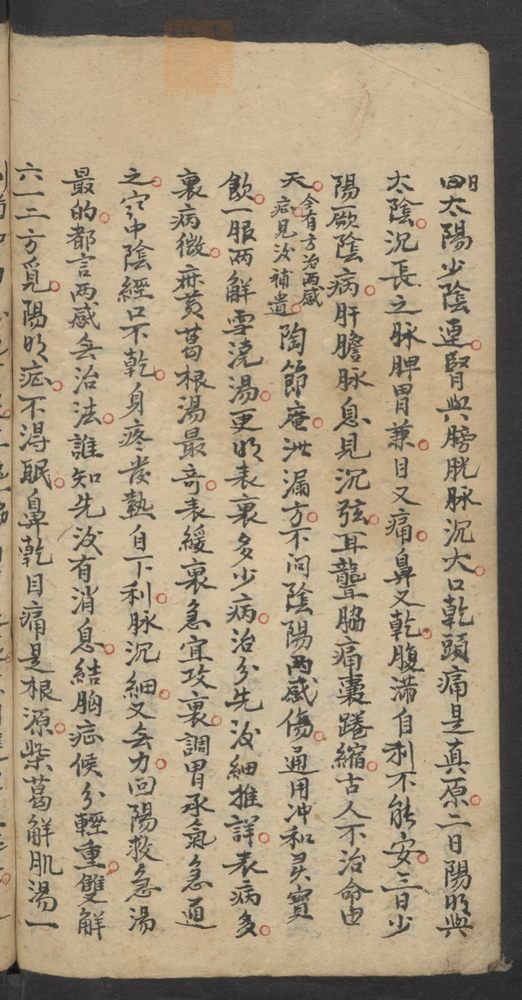 一日太陽少陰連腎與膀胱脉沉大口乾頭痛是真原二日陽明與
太陰沉長之脉脾胃兼目又痛鼻又乾腹滿自利不能安三日少
陽厥陰病肝膽脉息見沉弦耳聾脇痛囊踡縮古人不治命由
天今有方治兩感症見汝補遺陶節庵泄漏方不問陰陽兩感傷通用冲和灵寶
飲一服兩解雪澆湯更明表裏多少病治分先汝細推詳表病多
裏病微麻黄葛根湯最奇表緩裏急宜攻裏調胃承氣急通
之空中陰經口不乾身疼發熱自下利脉沉細又無力回陽救急湯
最的都言兩感無治法誰知先汝有消息結胸症候分輕重雙解
六一二方覓陽明症不得眠鼻乾目痛是根源柴葛解肌湯一